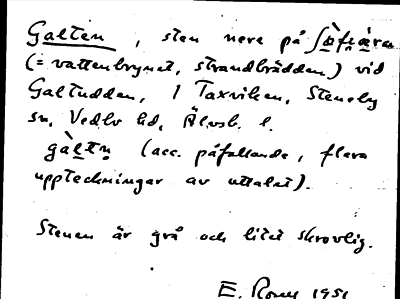 Galten, sten nere på
(= vattenbrynet, strandbrädden) vid
Galtudden, i Taxviken, Steneby
sn, Vedbo hd, Älvsb. l.
gàltn̥ (acc. påfallande, flera
uppteckningar av uttalet).
Stenen är grå och litet skrovlig.
E. 1951